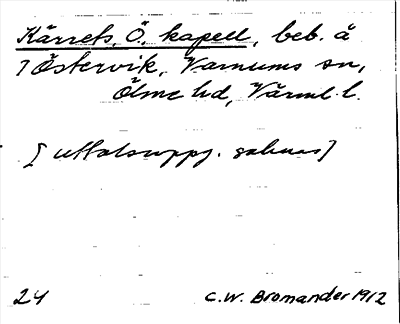 Kärrets, Ö., kapell, beb. å
7 Östervik, Varnums sn,
Ölme hd, Värml. l.
[uttalsuppg. saknas]
24 C.W. Bromander 1912